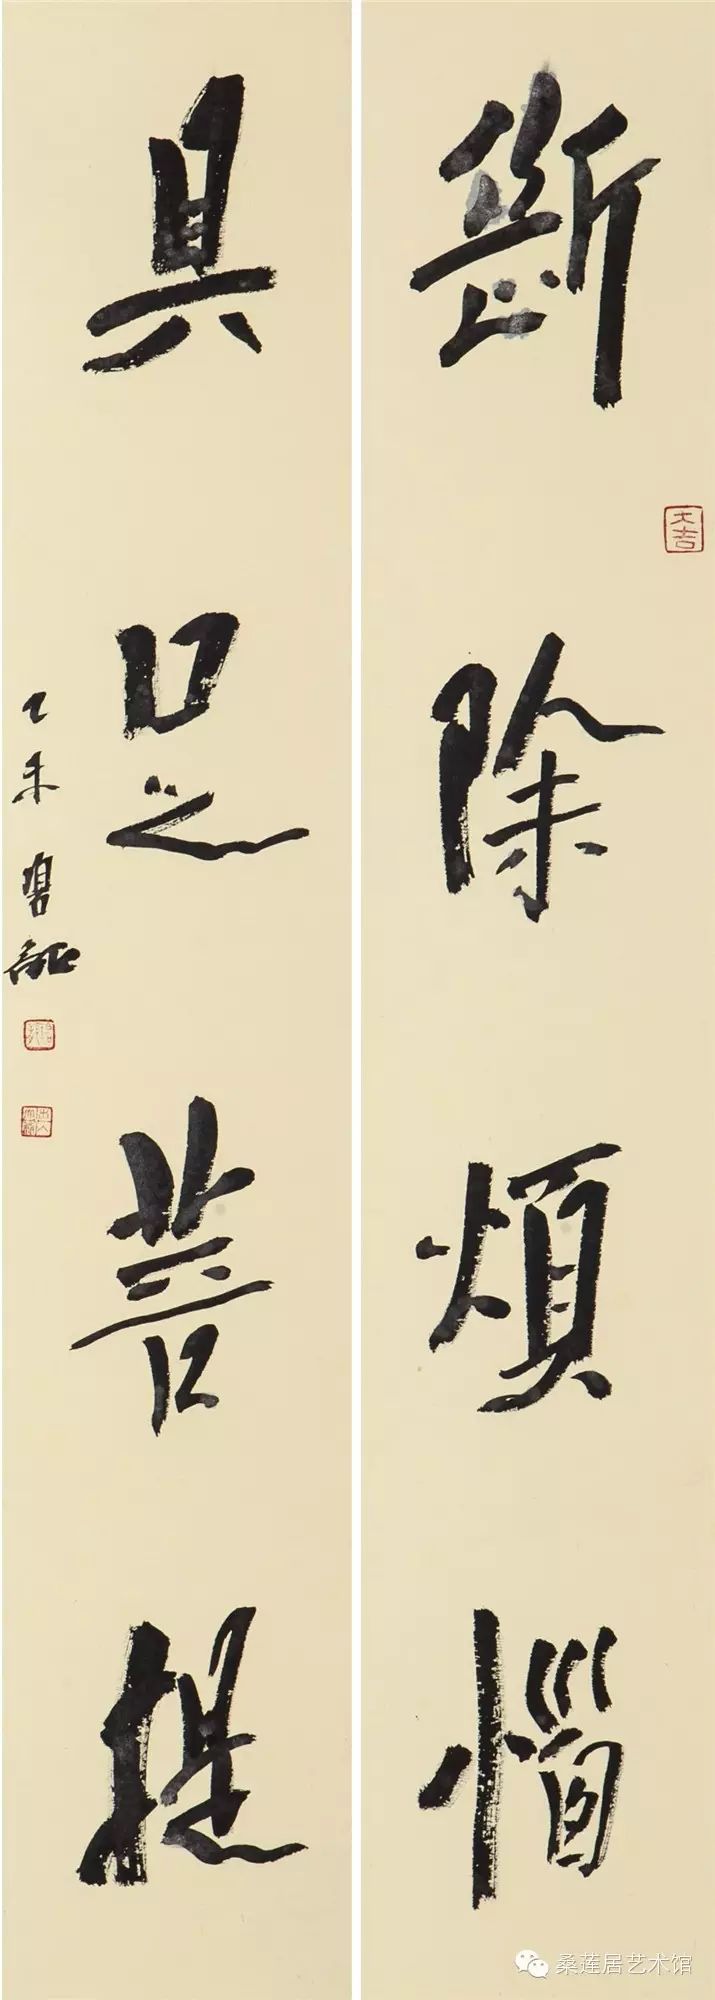 斷除煩惱
具足菩提
乙未
大吉
桑莲居艺术馆